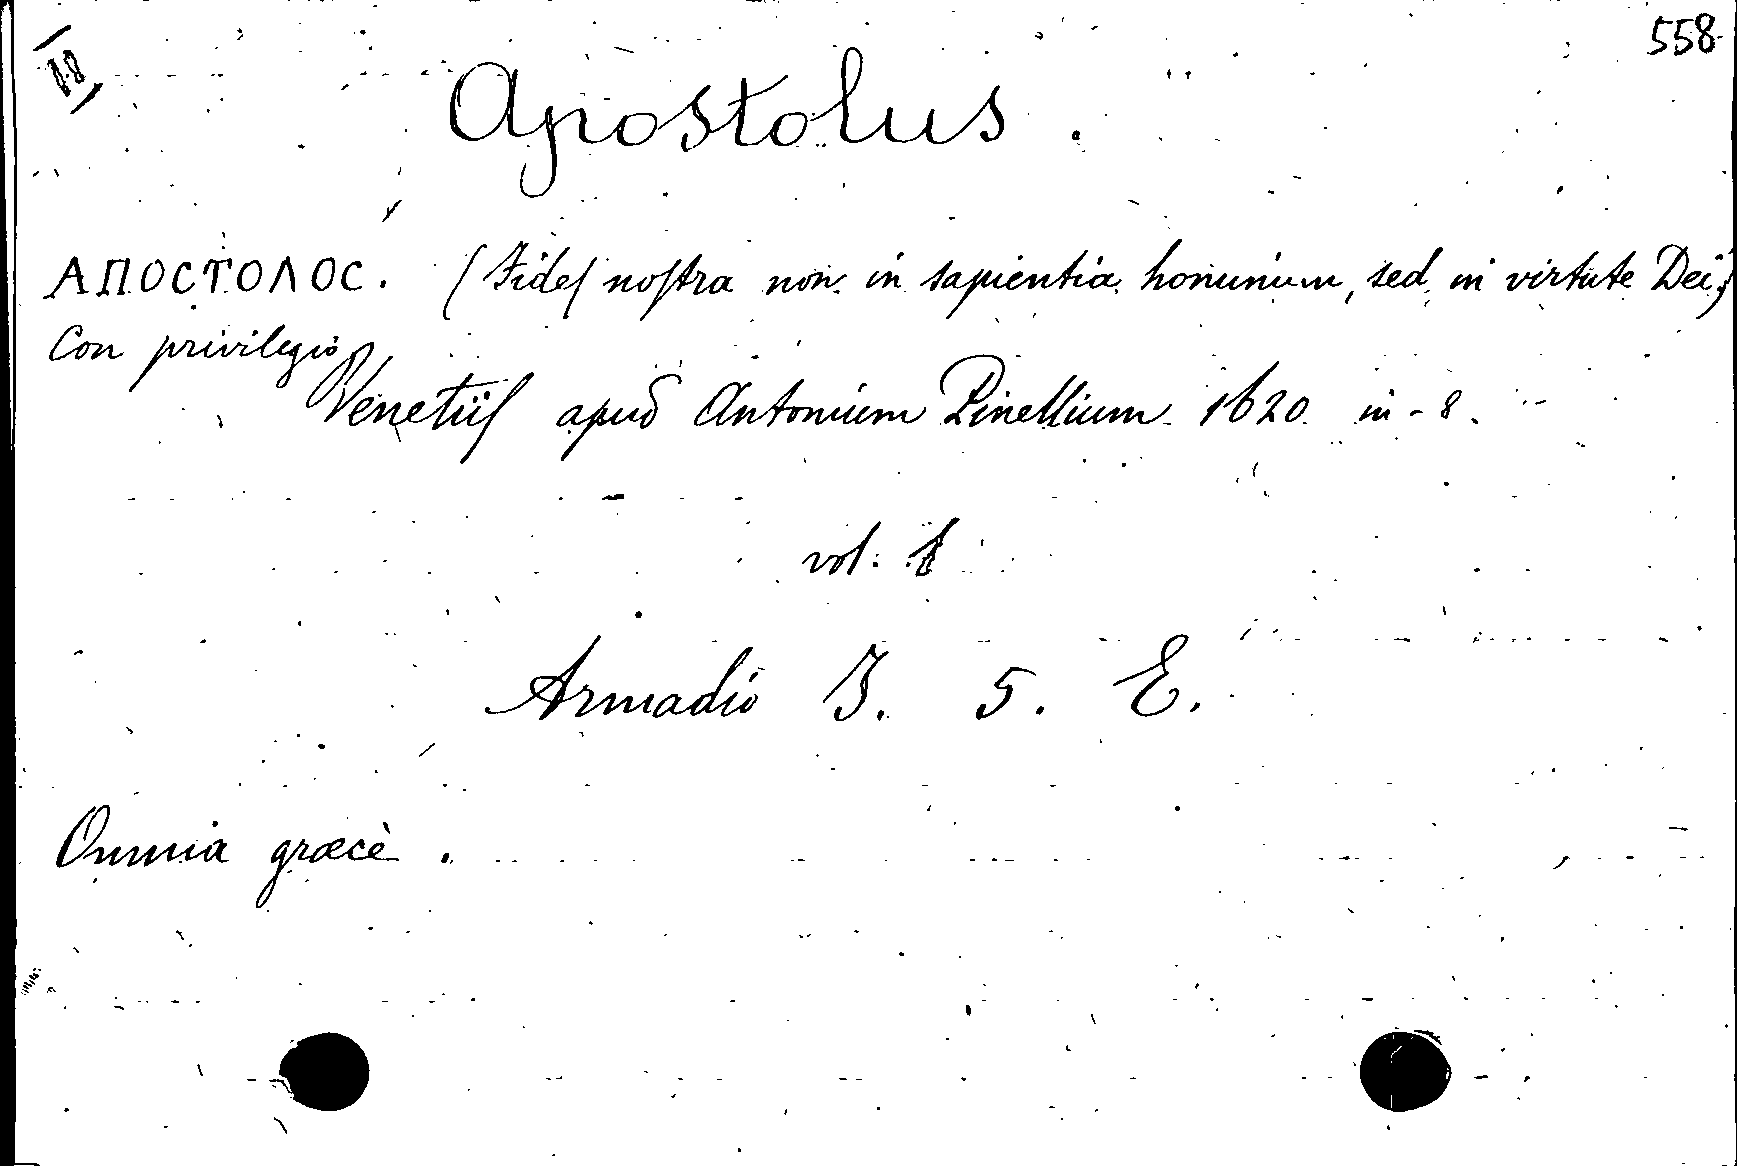 558
Apostolus.
ΑΠΟCΤΟΛΟC. (Fideſ noſtra non in sapientia hominum, sed in virtute Dei)
Con privilegio
Venetiiſ apud Antonium Pinellium 1620 in-8.
vol. 1
Armadio I. 5. E.
Omnia græcè.